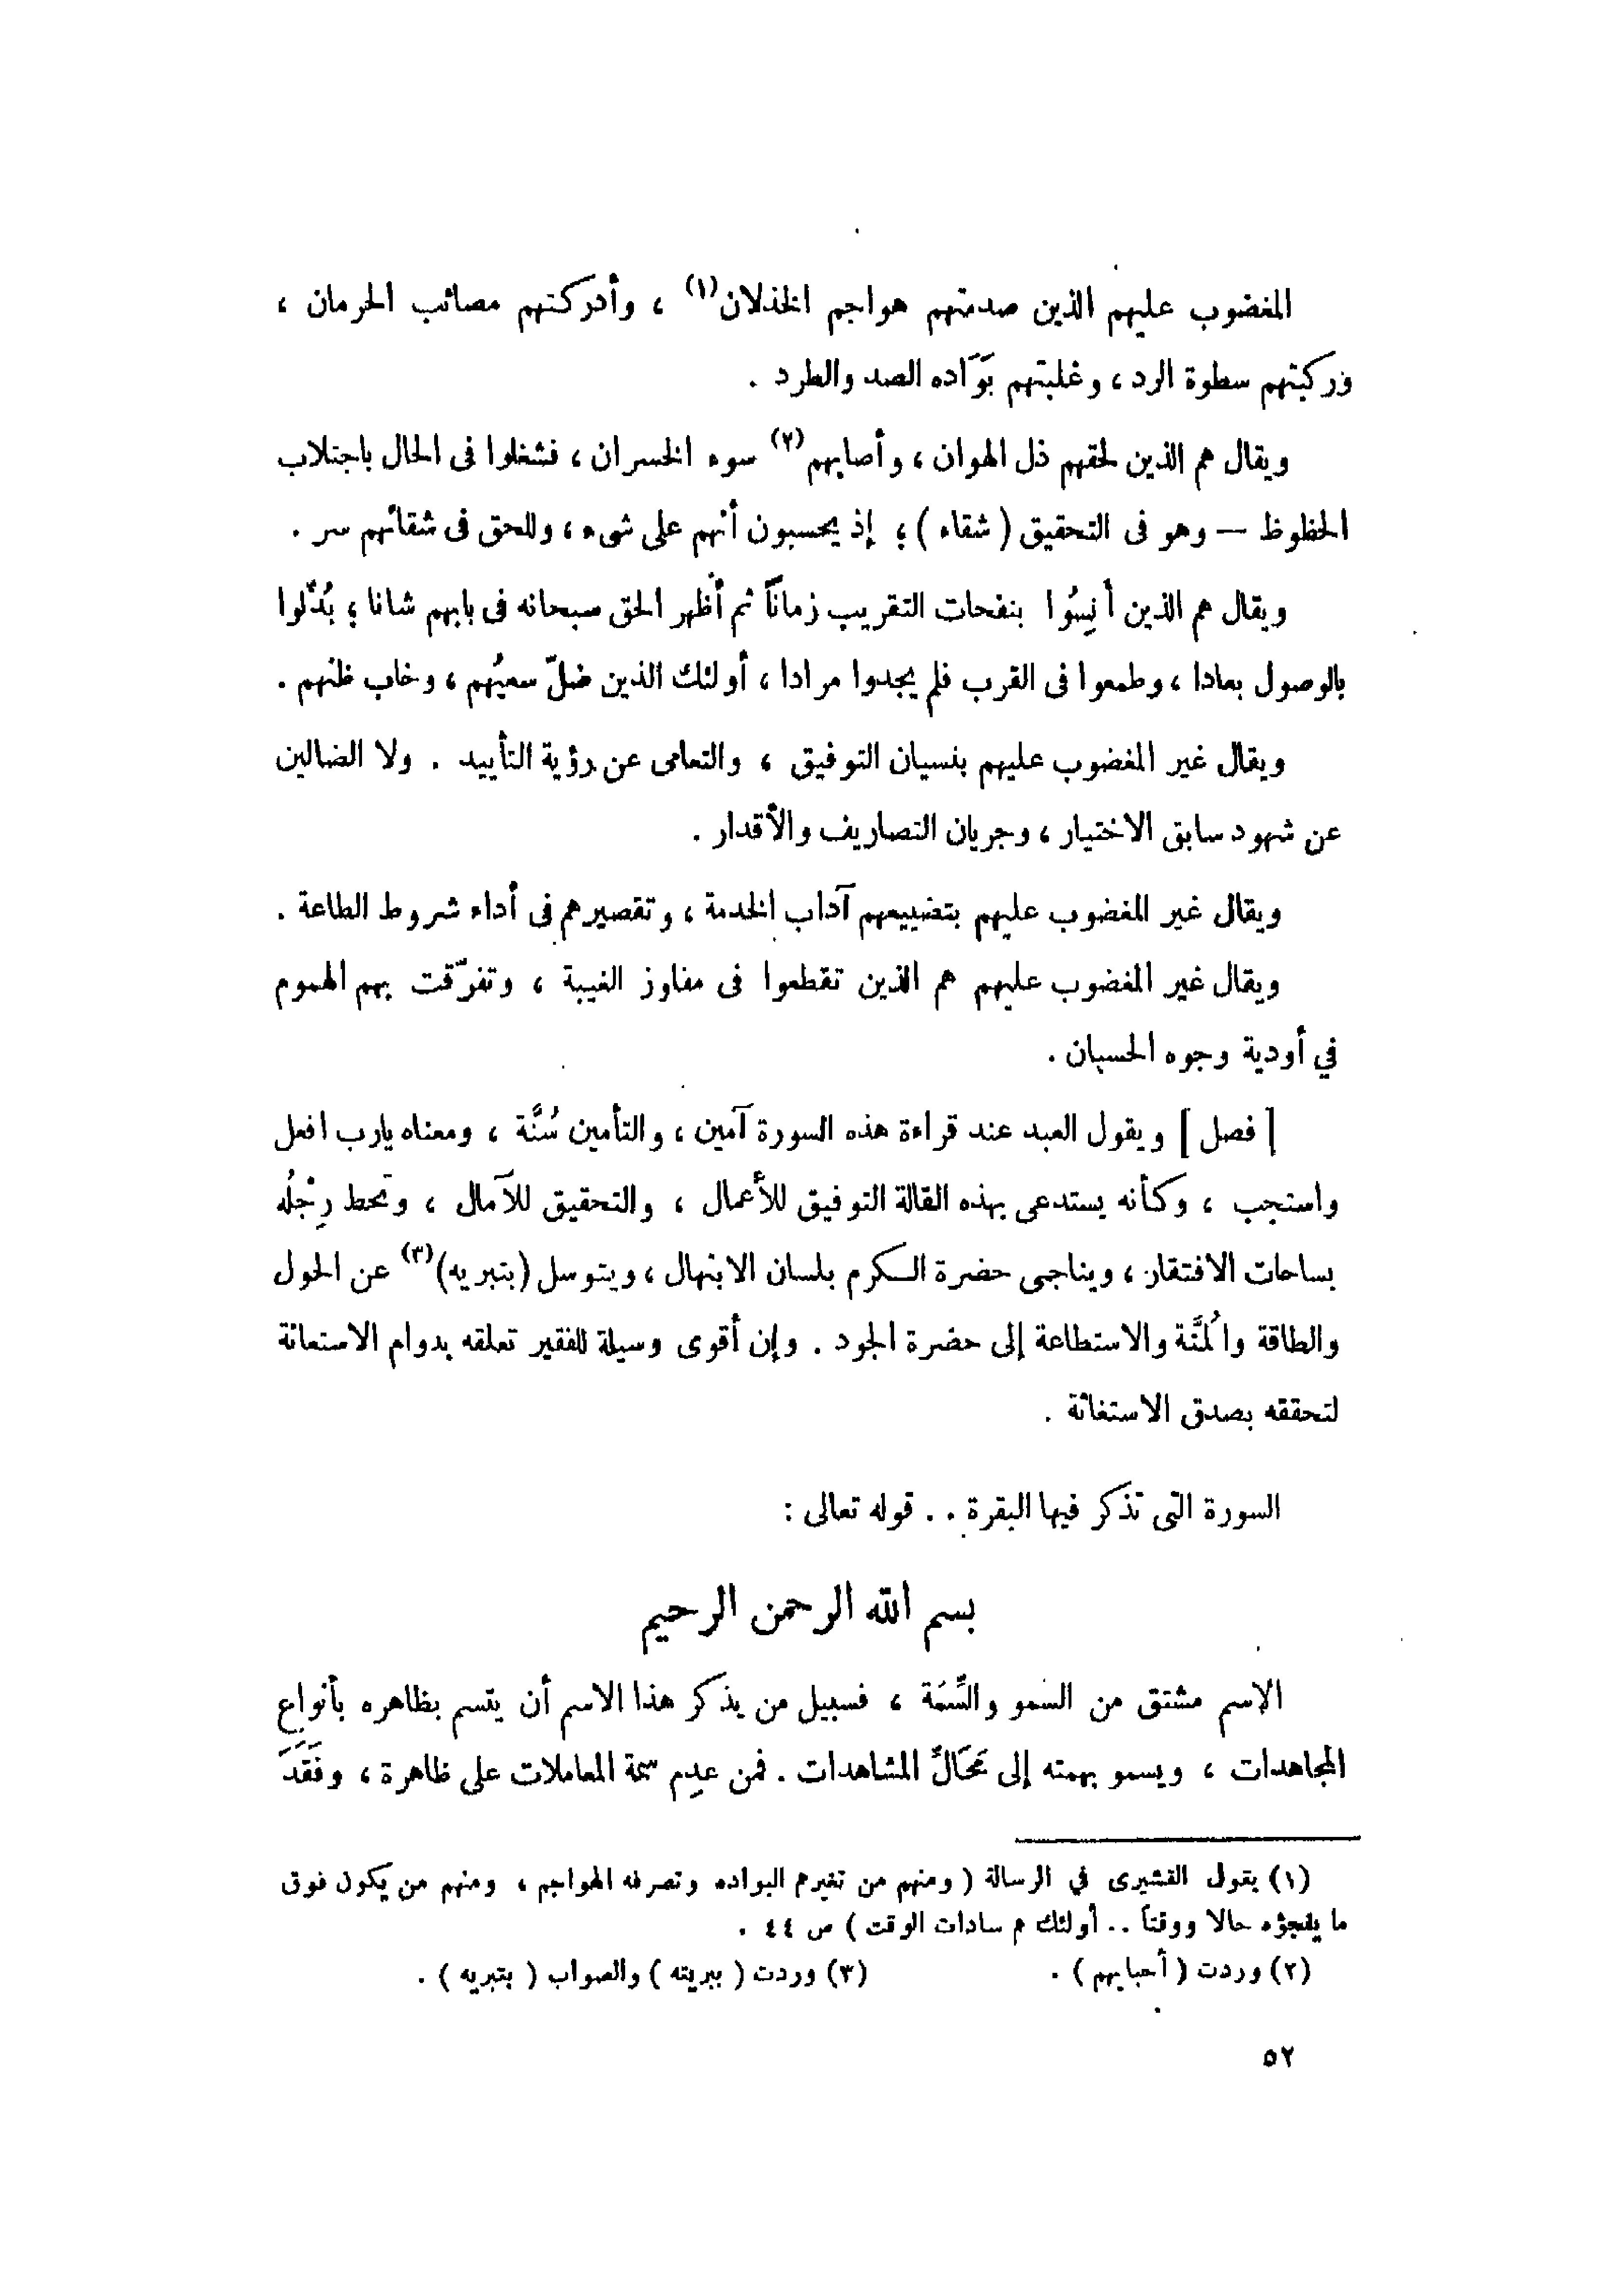 المغضوب عليهم الذين صدمتهم هواجم الخذلان(١) ، وأدركتهم مصائب الحرمان ،
وركبتهم سطوة الرد ، وغلبتهم بَوَاده الصد والطرد .
ويقال هم الذين لحقهم ذل الهوان ، وأصابهم(٢) سوء الخسران ، فشغلوا فى الحال باجتلاب
الحظوظ — وهو فى التحقيق ( شقاء ) ؛ إذ يحسبون أنهم على شىء ، وللحق فى شقائهم سر .
ويقال هم الذين أنِسُوا بنفحات التقريب زماناً ثم أظهر الحق سبحانه فى بابهم شانا ؛ بُدِّلوا
بالوصول بعادا ، وطمعوا فى القرب فلم يجدوا مرادا ، أولئك الذين ضلّ سعيُهم ، وخاب ظنهم .
ويقال غير المغضوب عليهم بنسيان التوفيق ، والتعامى عن رؤية التأييد . ولا الضالين
عن شهود سابق الاختيار ، وجريان التصاريف والأقدار .
ويقال غير المغضوب عليهم بتضييعهم آداب الخدمة ، وتقصيرهم فى أداء شروط الطاعة .
ويقال غير المغضوب عليهم هم الذين تقطعوا فى مفاوز الغيبة ، وتفرّقت بهم الهموم
في أودية وجوه الحسبان .
[ فصل ] ويقول العبد عند قراءة هذه السورة آمين ، والتأمين سُنَّة ، ومعناه يارب افعل
واستجب ، وكأنه يستدعى بهذه القالة التوفيق للأعمال ، والتحقيق للآمال ، وتحط رِجْلُه
بساحات الافتقار ، ويناجى حضرة الكرم بلسان الابتهال ، ويتوسل (بتبريه)(٣) عن الحول
والطاقة والمُنَّة والاستطاعة إلى حضرة الجود . وإن أقوى وسيلة للفقير تعلقه بدوام الاستعانة
لتحققه بصدق الاستغاثة .
السورة التى تذكر فيها البقرة . . قوله تعالى :
بسم الله الرحمن الرحيم
الإسم مشتق من السمو والسِّمَة ، فسبيل من يذكر هذا الاسم أن يتسم بظاهره بأنواع
المجاهدات ، ويسمو بهمته إلى مَحَالِّ المشاهدات . فمن عدِم سمة المعاملات على ظاهرة ، وفَقَدَ
(١) يقول القشيرى في الرسالة ( ومنهم من تغيرهم البواده وتصرفه الهواجم ، ومنهم من يكون فوق
ما يفجؤه حالا ووقتاً .. أولئك هم سادات الوقت ) ص ٤٤ .
(٢) وردت ( أحبابهم ) . (٣) وردت ( ببريته ) والصواب ( بتبريه ) .
٥٢